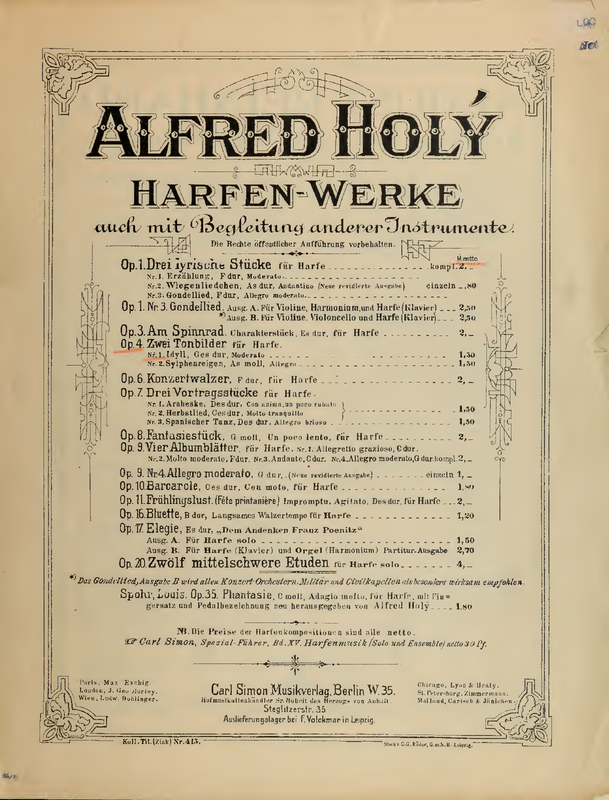 ALFRED HOLÝ
HARFEN-WERKE
auch mit Begleitung anderer Instrumente.
Die Rechte öffentlicher Aufführung vorbehalten.
M. netto
Op. 1. Drei lyrische Stücke für Harfe kompl. 2,–
Nr. 1. Erzählung, F dur, Moderato.
Nr. 2. Wiegenliedchen, As dur, Andantino (Neue revidierte Ausgabe) einzeln ,80
Nr. 3. Gondellied, F dur, Allegro moderato.
Op. 1. Nr. 3. Gondellied, Ausg. A. Für Violine, Harmonium, und Harfe (Klavier) 2,50
*) Ausg. B. Für Violine, Violoncello und Harfe (Klavier) 2,50
Op. 3. Am Spinnrad. Charakterstück, Es dur, für Harfe 2,–
Op. 4. Zwei Tonbilder für Harfe.
Nr. 1. Idyll, Ges dur, Moderato 1,50
Nr. 2. Sylphenreigen, As moll, Allegro 1,50
Op. 6. Konzertwalzer, F dur, für Harfe 2,–
Op. 7. Drei Vortragsstücke für Harfe.
Nr. 1. Arabeske, Des dur, Con anima, un poco rubato
Nr. 2. Herbstlied, Ces dur, Molto tranquillo 1,50
Nr. 3. Spanischer Tanz, Des dur, Allegro brioso 1,50
Op. 8. Fantasiestück, G moll, Un poco lento, für Harfe 2,–
Op. 9. Vier Albumblätter, für Harfe. Nr. 1. Allegretto grazioso, C dur.
Nr. 2. Molto moderato, F dur. Nr. 3. Andante, C dur. Nr. 4. Allegro moderato, G dur. kompl. 2,–
Op. 9. Nr. 4. Allegro moderato, G dur, (Neue revidierte Ausgabe) einzeln 1,–
Op. 10. Barcarole, Ces dur, Con moto, für Harfe 1.80
Op. 11. Frühlingslust. (Fête printanière) Impromptu, Agitato, Des dur, für Harfe 2,–
Op. 16. Bluette, B dur, Langsames Walzertempo für Harfe 1,20
Op. 17. Elegie, Es dur, „Dem Andenken Franz Poenitz"
Ausg. A. Für Harfe solo 1,50
Ausg. B. Für Harfe (Klavier) und Orgel (Harmonium) Partitur-Ausgabe 2,70
Op. 20. Zwölf mittelschwere Etuden für Harfe solo 4,–
*) Das Gondellied, Ausgabe B wird allen Konzert-Orchestern, Militär und Civilkapellen als besonders wirksam empfohlen.
Spohr, Louis. Op. 35. Phantasie, C moll, Adagio molto, für Harfe, mit Fin-
gersatz und Pedalbezeichnung neu herausgegeben von Alfred Holý 1.80
NB. Die Preise der Harfenkompositionen sind alle netto.
☞ Carl Simon, Spezial-Führer, Bd. XV. Harfenmusik (Solo und Ensemble) netto 30 Pf.
Paris, Max Eschig.
London, J. Geo Morley.
Wien, Ludw. Doblinger.
Carl Simon Musikverlag, Berlin W. 35.
Hofmusikalienhändler Sr. Hoheit des Herzogs von Anhalt
Steglitzerstr. 35
Auslieferungslager bei F. Volckmar in Leipzig.
Chicago, Lyon & Healy.
St. Petersburg, Zimmermann.
Mailand, Carisch & Jänichen.
Koll. Tit. (Zink) Nr. 415.
Stich v. C. G. Röder, G.m.b.H. Leipzig.